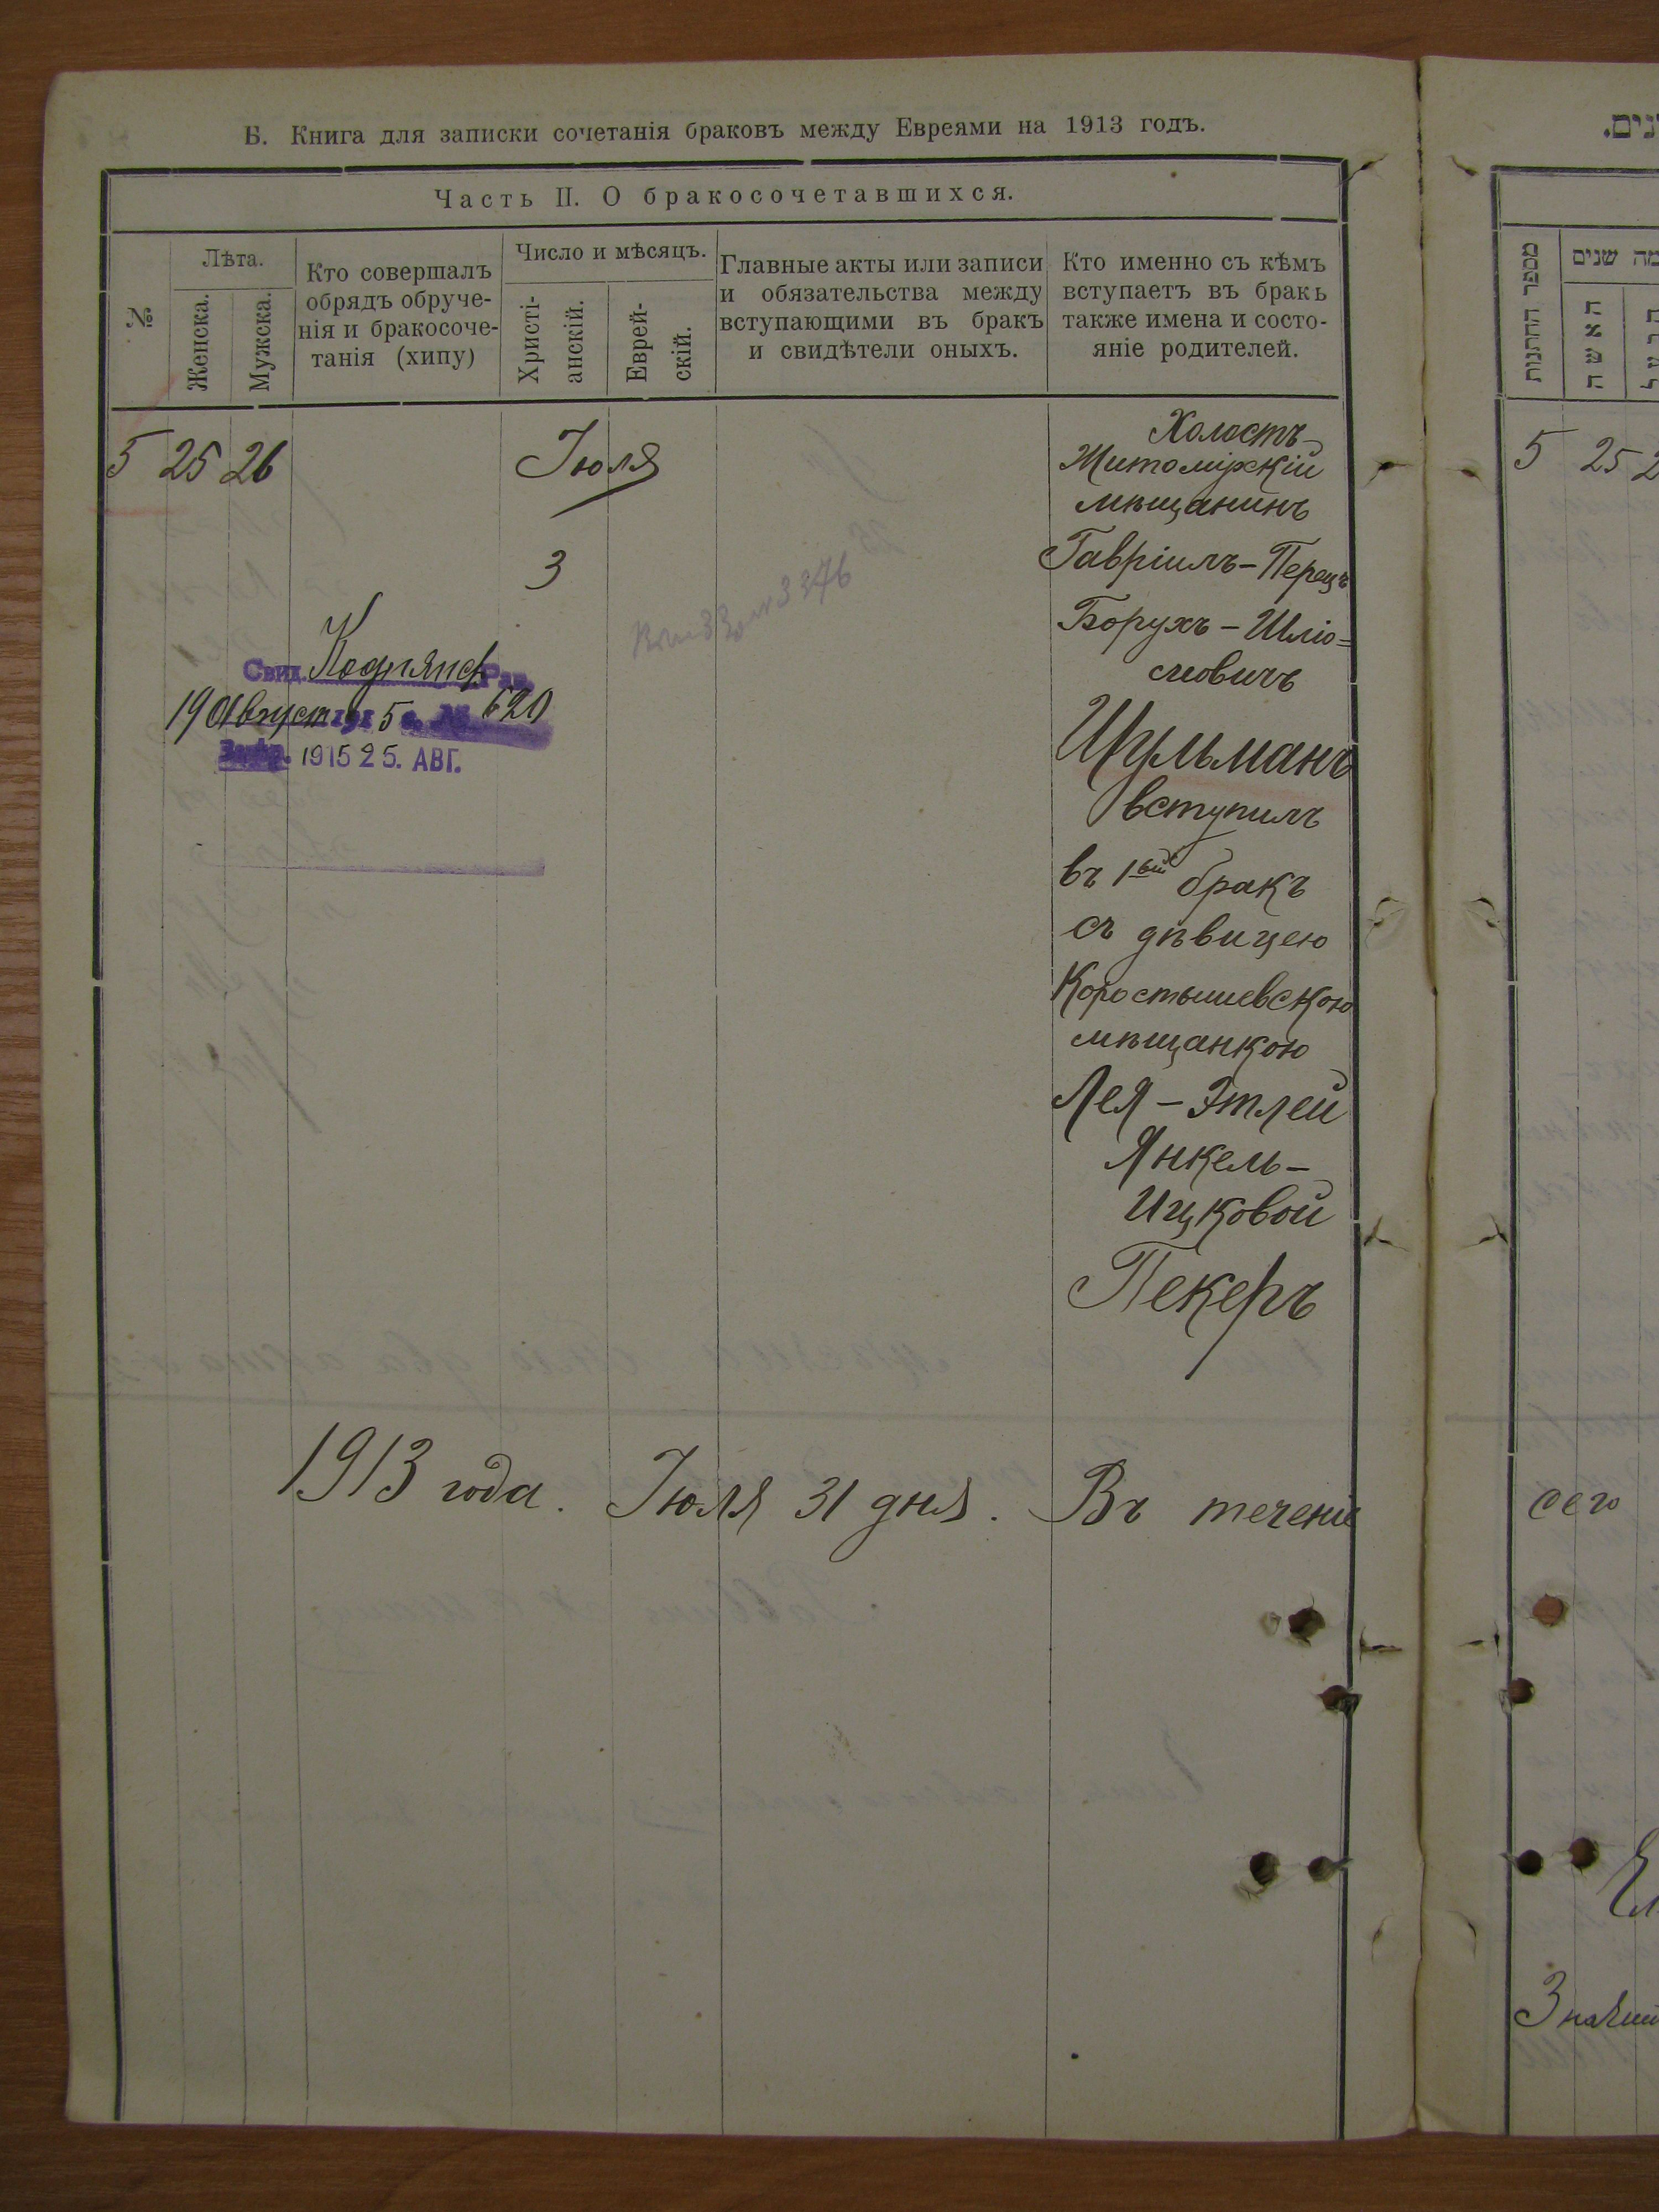 Б. Книга для записки сочетанія браковъ между Евреями на 1913 годъ.
Часть II. О бракосочетавшихся.
№
Лѣта.
Женска.
Мужска.
Кто совершалъ
обрядъ обруче-
нія и бракосоче-
танія (хипу)
Число и мѣсяцъ.
Христі-
анскій.
Еврей-
скій.
Главные акты или записи
и обязательства между
вступающими въ бракъ
и свидѣтели оныхъ.
Кто именно съ кѣмъ
вступаетъ въ бракъ
также имена и состо-
яніе родителей.
5 25 26 Іюля
3
Холостъ
Житомірскій
мѣщанинъ
Гавріилъ-Перецъ
Борухъ-Шліо=
мовичъ
Шульманъ
вступилъ
въ 1ый бракъ
съ дѣвицею
Коростышевскою
мѣщанкою
Лея-Этлей
Янкель-
Ицковой
Пекеръ
3376
Свид. Рав.
19 Августа 5 № 620
1915 25. АВГ.
1913 года. Іюля 31 дня. Въ теченіе
מספר החתונות
מה שנים
האשה
5 25 2
сего